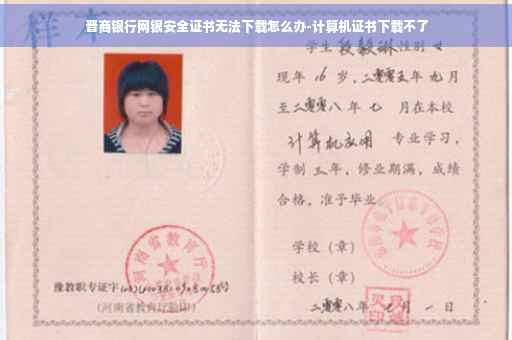 晋商银行网银安全证书无法下载怎么办-计算机证书下载不了
样本
学生段毅琳性别女
现年16岁，二零零五年九月
至二零零八年七月在本校
计算机应用专业学习，
学制三年，修业期满，成绩
合格，准予毕业。
学校（章）
校长（章）
二零零八年七月一日
河南省教育厅
豫教职专证字
（河南省教育厅验印）